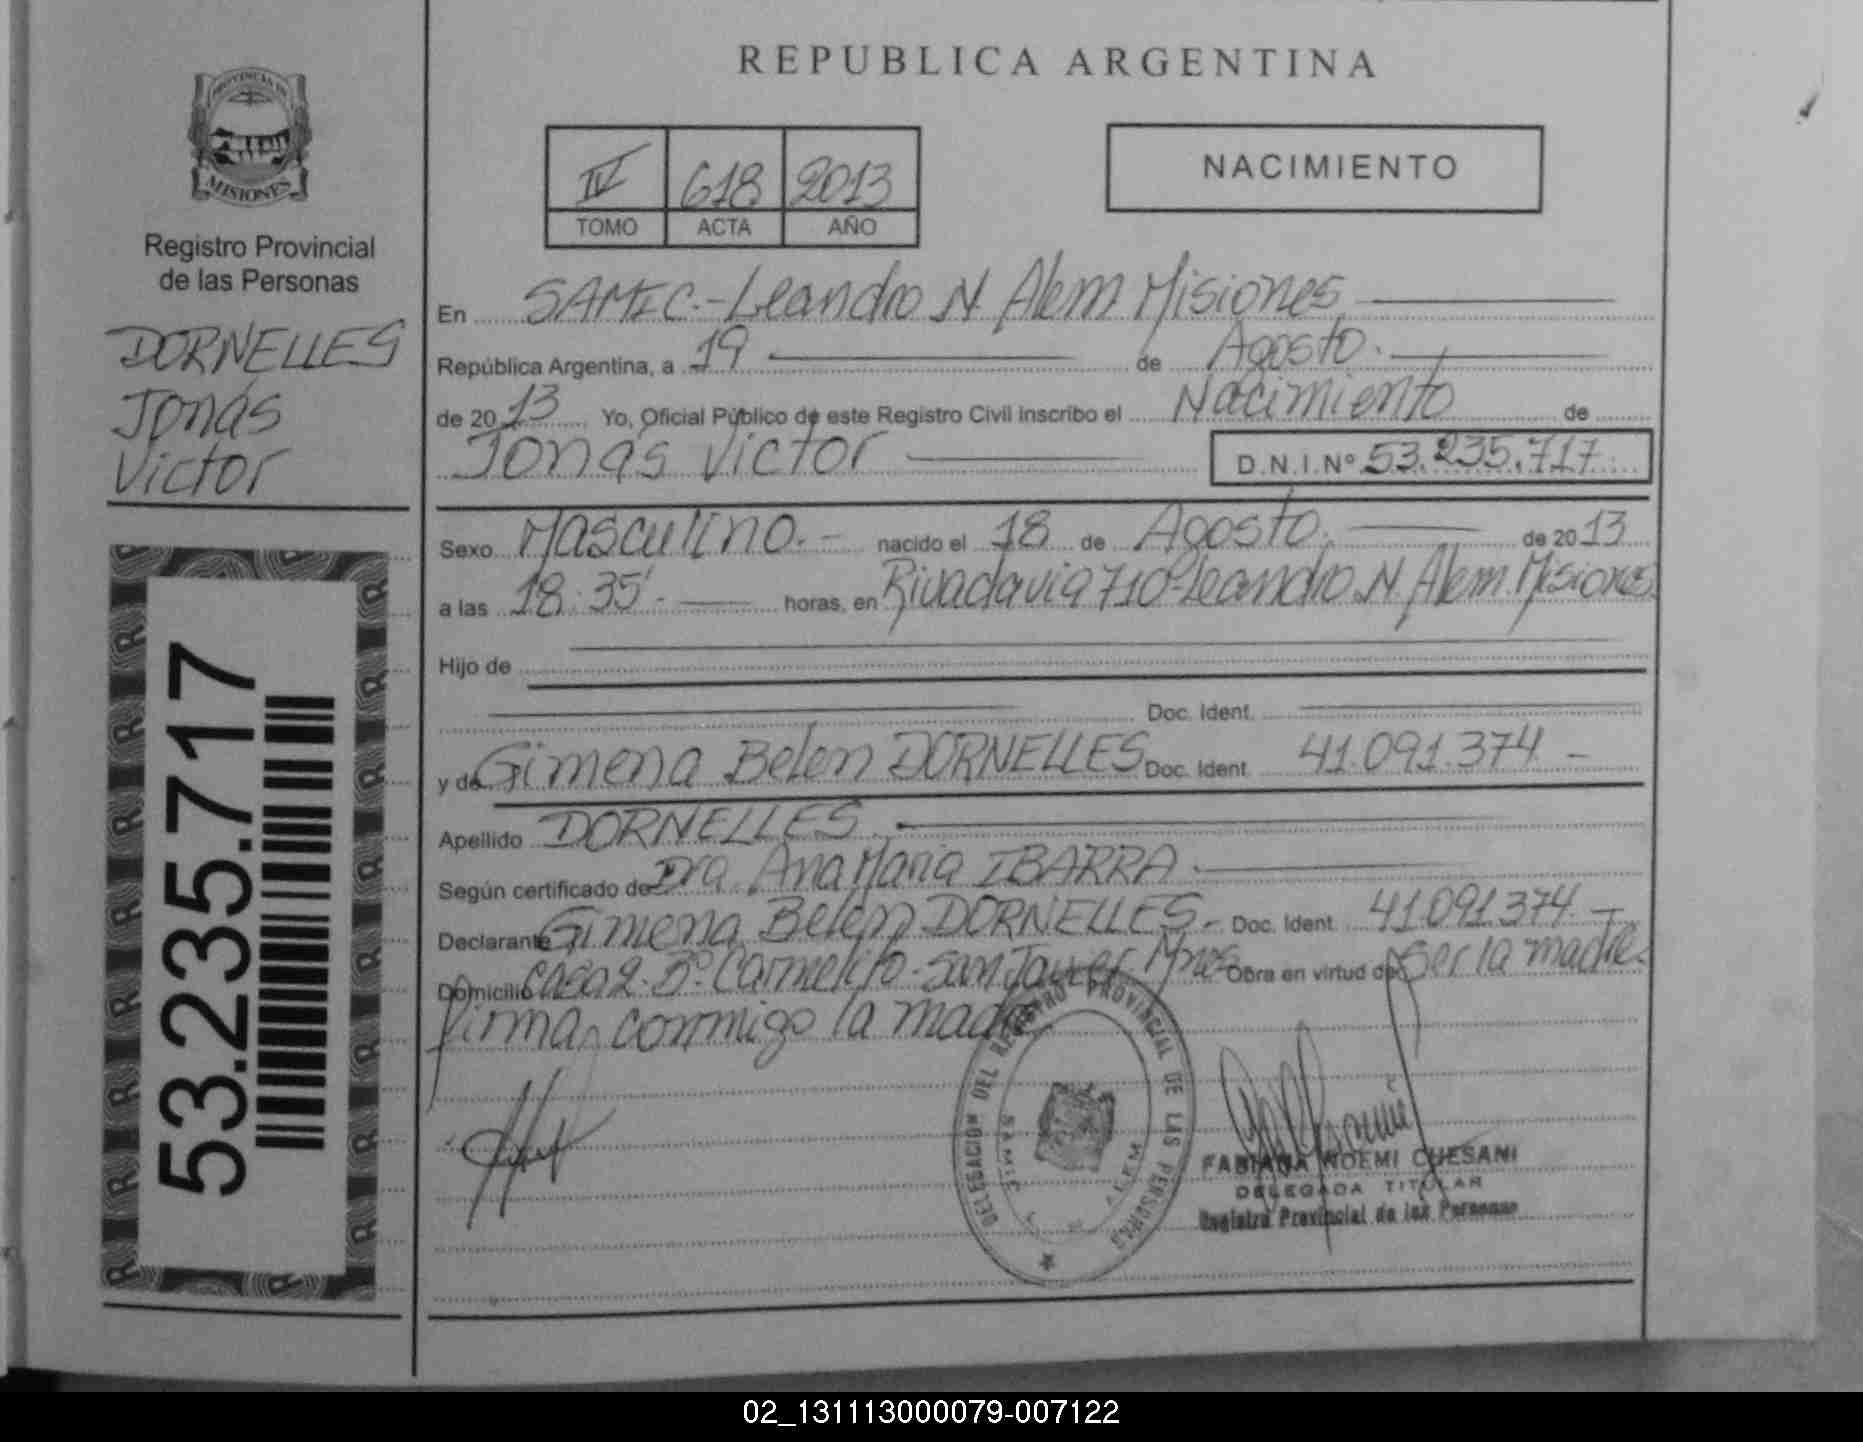 PROVINCIA DE
MISIONES
Registro Provincial
de las Personas
DORNELLES
Jonás
Victor
53.235.717
REPUBLICA ARGENTINA
IV 618 2013
TOMO ACTA AÑO
NACIMIENTO
En SAMIC.-Leandro N. Alem Misiones
República Argentina, a 19 de Agosto.
de 2013 Yo, Oficial Público de este Registro Civil Inscribo el Nacimiento de
Jonás Victor D.N.I.Nº 53.235.717
Sexo Masculino.- nacido el 18 de Agosto. de 2013
a las 18:35'.- horas, en Rivadavia 710-Leandro N. Alem. Misiones.
Hijo de
Doc. Ident.
y de Gimena Belen DORNELLES Doc. Ident. 41.091.374.-
Apellido DORNELLES.
Según certificado de Dra. Ana Maria IBARRA.
Declarante Gimena Belén DORNELLES.- Doc. Ident. 41.091.374.-
Domicilio casa 2. Bº Carmelito-San Javier Mnes. Obra en virtud de Ser la madre.
firma conmigo la madre
DELEGACION DEL REGISTRO PROVINCIAL DE LAS PERSONAS
SAMIC
ALEM
FABIANA NOEMI CHESANI
DELEGADA TITULAR
Registro Provincial de las Personas
02_131113000079-007122